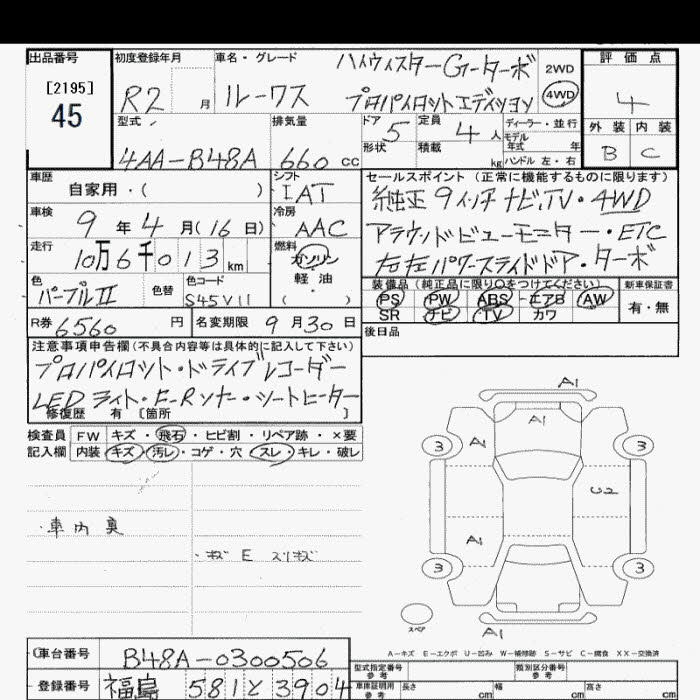 出品番号 初度登録年月 車名・グレード ハイウィスターGターボ 2WD 評価点
[2195] R2 月 ルークス プロパイロットエディション 4WD 4
45 型式 排気量 ドア 5 定員 4 人 ディーラー・並行 外装 内装
4AA-B48A 660 cc 形状 積載 kg モデル年式 年 ハンドル 左・右 B C
車歴 自家用・( ) シフト IAT セールスポイント (正常に機能するものに限ります)
車検 9 年 4 月 (16 日) 冷房 AAC 純正9インチナビ,TV・4WD
走行 10万6千013 km 燃料 ガソリン 軽油 ( ・ ) アラウンドビューモニター・ETC
色 パープルII 色替 色コード S45V11 右左パワースライドドア・ターボ
装備品 (純正品に限り○をつけてください) 新車保証書
PS PW ABS エアB AW 有・無
SR ナビ TV カワ
R券 6560 円 名変期限 9 月 30 日 後日品
注意事項申告欄 (不具合内容等は具体的に記入して下さい)
プロパイロット・ドライブレコーダー
LEDライト・F-Rソナー・シートヒーター
修復歴 有 [箇所 ]
検査員 FW キズ・飛石・ヒビ割・リペア跡・×要
記入欄 内装 キズ・汚レ・コゲ・穴・スレ・キレ・破レ
・車内臭
・キズ E スリキズ
A1
A1
3 A1 3
U2
A1
3 3
スペア
A1
A-キズ E-エクボ U-凹み W-補修跡 S-サビ C-腐食 XX-交換済
車台番号 B48A-0300506 型式指定番号 参考 類別区分番号 参考
登録番号 福島 581 と 3904 車庫証明用 参考 長さ cm 幅 cm 高さ cm